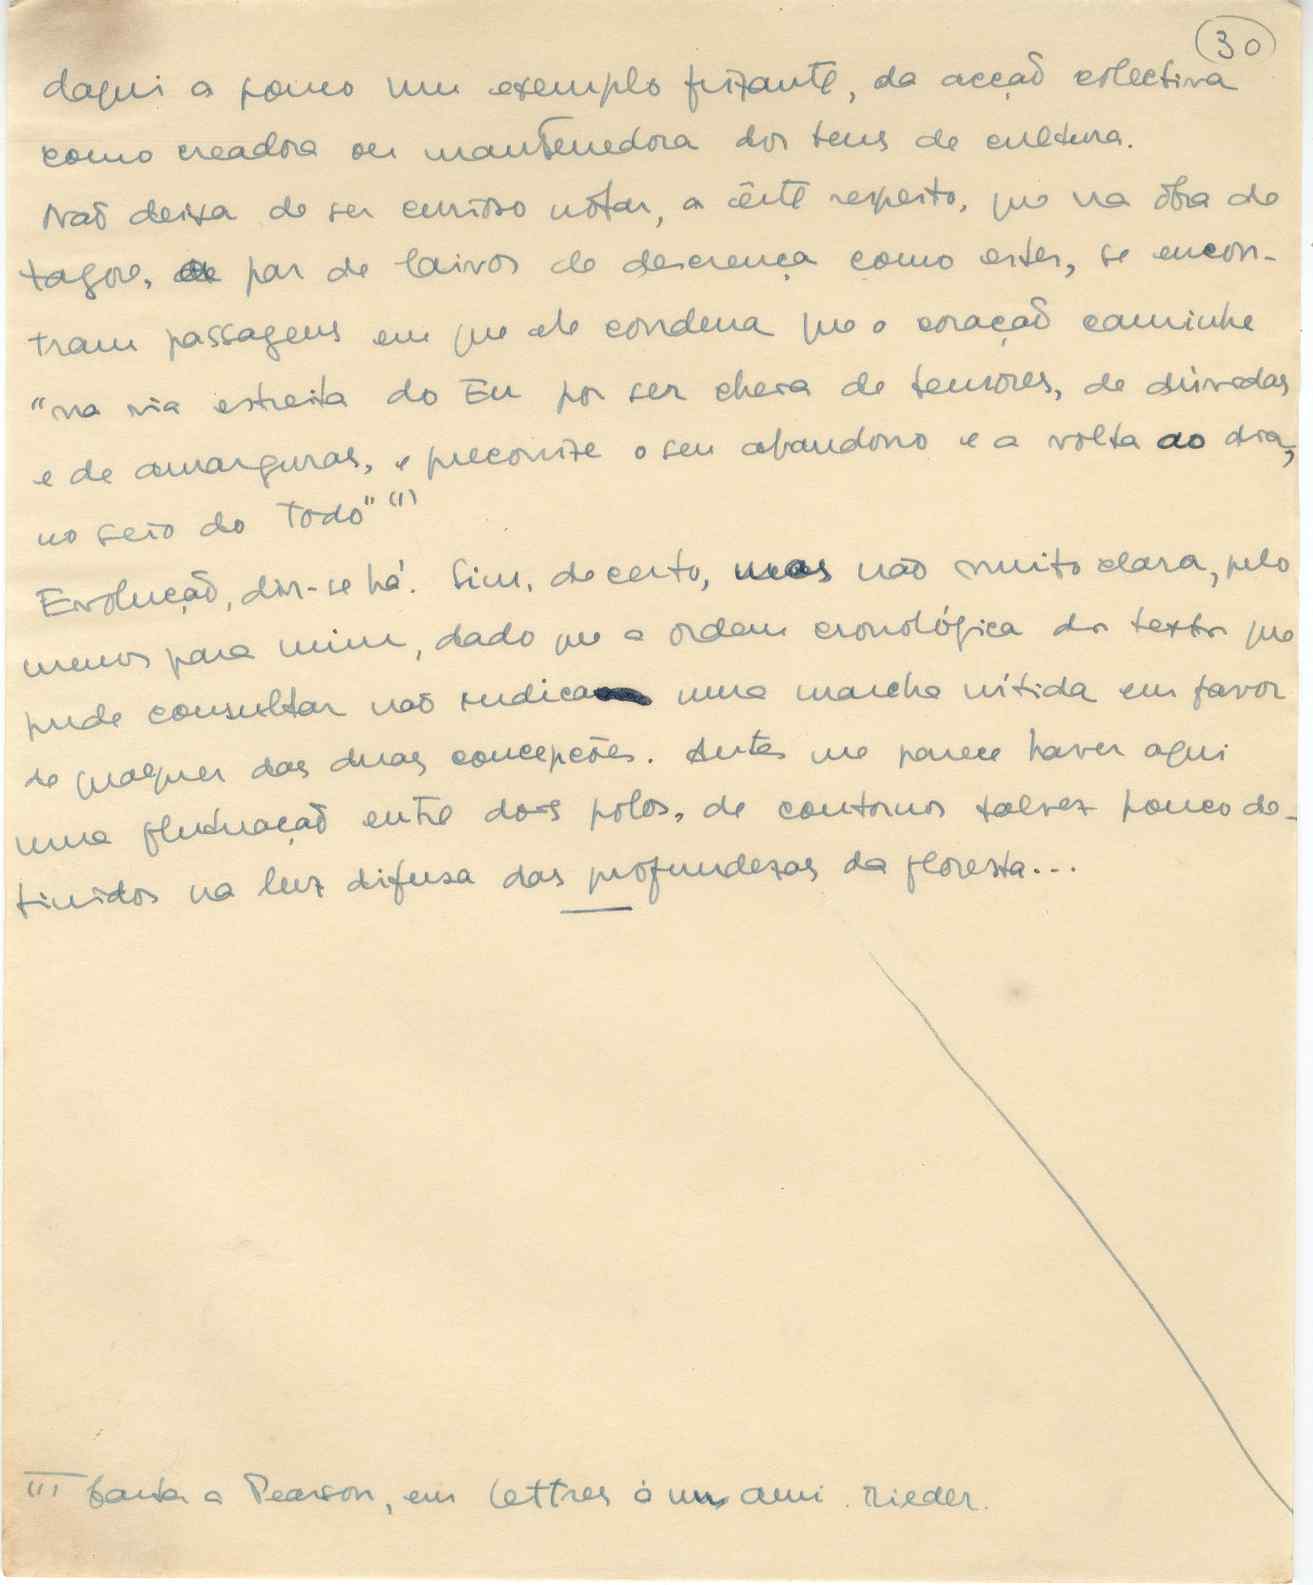 30
daqui a pouco um exemplo frizante, da acção colectiva
como creadora ou mantenedora dos bens de cultura.
Não deixa de ser curioso notar, a êste respeito, que na obra de
Tagore, a par de laivos de descrença como estes, se encon-
tram passagens em que ele condena que o coração caminhe
"na via estreita do Eu por ser cheia de temores, de dúvidas
e de amarguras, e preconize o seu abandono e a volta ao dia,
no seio do Todo" (1)
Evolução, dir-se há. Sim, decerto, mas não muito clara, pelo
menos para mim, dado que a ordem cronológica dos textos que
pude consultar não indica uma marcha nítida em favor
de qualquer das duas concepções. Antes me parece haver aqui
uma flutuação entre dois polos, de contornos talvez pouco de-
finidos na luz difusa das profundezas da floresta...
(1) Carta a Pearson, em Lettres à un ami. Rieder.